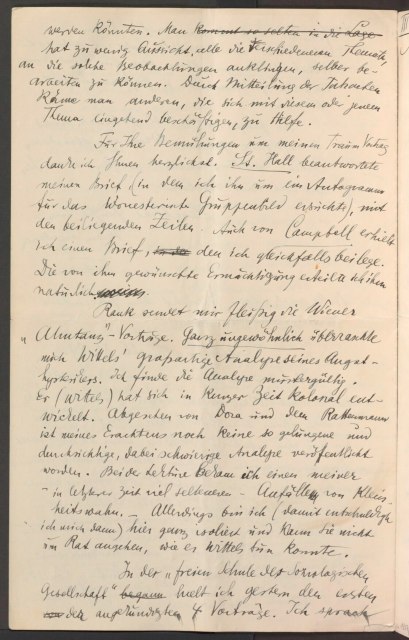 werden könnten. Man kommt so selten in die Lage
hat zu wenig Aussicht, alle die verschiedenen Themata,
an die solche Beobachtungen anklingen, selber be-
arbeiten zu können. Durch Mitteilung der Tatsachen
käme man anderen, die sich mit diesem oder jenem
Thema eingehend beschäftigen, zu Hilfe.
Für Ihre Bemühungen um meinen Traum Vortrag
danke ich Ihnen herzlichst. St. Hall beantwortete
meinen Brief (in dem ich ihn um ein Autogramm
für das Worcesterische Gruppenbild ersuchte), mit
den beiliegenden Zeilen. Auch von Campbell erhielt
ich einen Brief, den ich gleichfalls beilege.
Die von ihm gewünschte Ermächtigung erteilte ich ihm
natürlich
Rank sendet mir fleißig die Wiener
„Abritanz"-Vorträge. Ganz ungewöhnlich überraschte
mich Wittels' großartige Analyse seines Angst-
hysterikers. Ich finde die Analyse mustergültig.
Er (Wittels) hat sich in kurzer Zeit kolossal ent-
wickelt. Abgesehen von Dora und dem Rattenmann
ist meines Erachtens noch keine so gelungene und
durchsichtige, dabei schwierige Analyse veröffentlicht
worden. Bei der Lektüre bekam ich einen meiner
- in letzterer Zeit viel selteneren - Anfälle von Klein-
heitswahn. - Allerdings bin ich (damit entschuldige
ich mich dann) hier ganz isoliert und kann Sie nicht
um Rat angehen, wie es Wittels tun konnte.
In der „freien Schule der soziologischen
Gesellschaft" begann hielt ich gestern den ersten
der angekündigten 4 Vorträge. Ich sprach